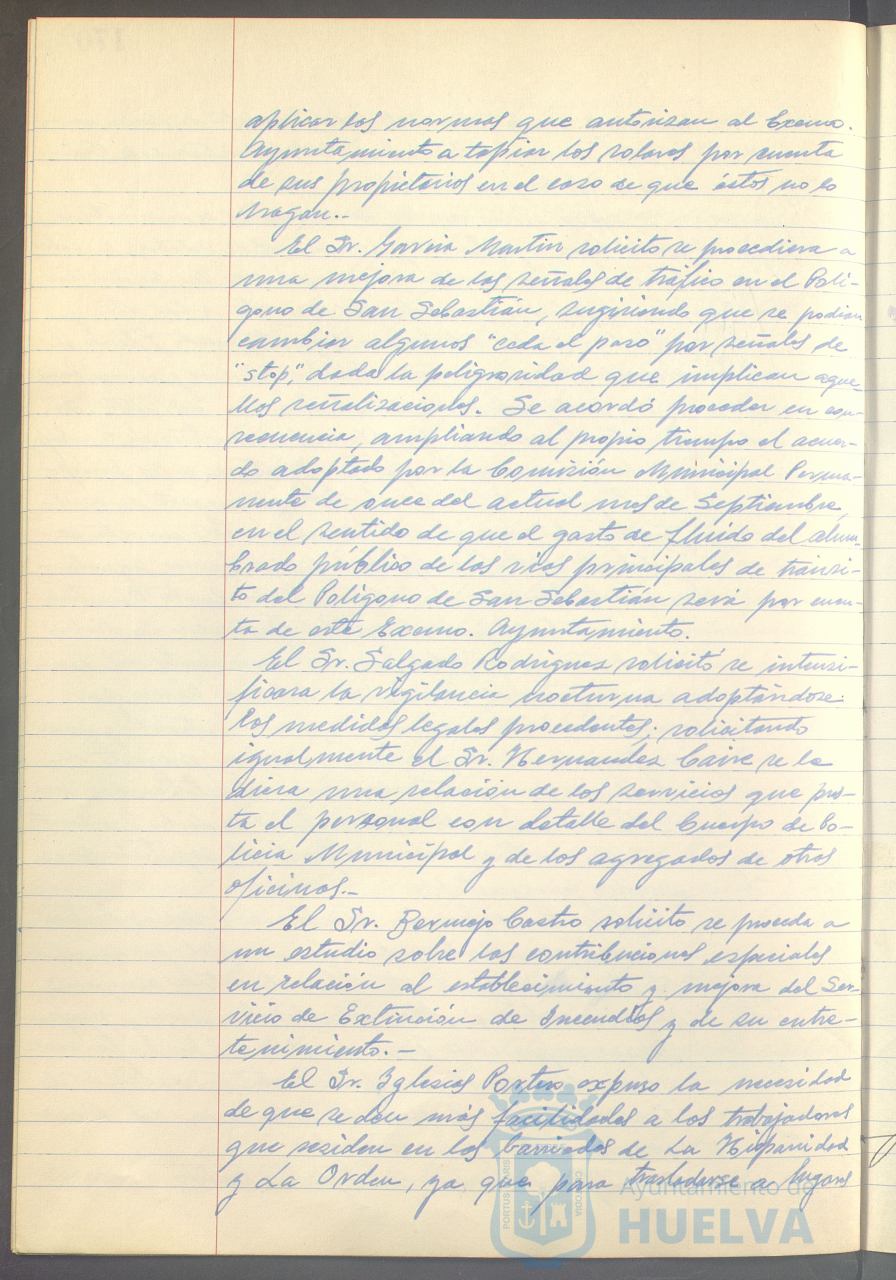 aplicar las normas que autorizan al Excmo.
Ayuntamiento a tapiar los solares por cuenta
de sus propietarios en el caso de que éstos no lo
hagan.-
El Sr. García Martín solicitó se procediera a
una mejora de las señales de tráfico en el Polí-
gono de San Sebastián, sugiriendo que se podían
cambiar algunos "ceda el paso" por señales de
"stop", dada la peligrosidad que implican aque-
llas señalizaciones. Se acordó proceder en con-
secuencia, ampliando al propio tiempo el acuer-
do adoptado por la Comisión Municipal Perma-
nente de once del actual mes de Septiembre,
en el sentido de que el gasto de fluido del alum-
brado público de las vías principales de tránsi-
to del Polígono de San Sebastián será por cuen-
ta de este Excmo. Ayuntamiento.
El Sr. Salgado Rodríguez solicitó se intensi-
ficara la vigilancia nocturna adoptándose
las medidas legales procedentes; solicitando
igualmente el Sr. Hernández Caire se le
diera una relación de los servicios que pres-
ta el personal con detalle del Cuerpo de Po-
licía Municipal y de los agregados de otras
oficinas.-
El Sr. Bermejo Castro solicitó se proceda a
un estudio sobre las contribuciones especiales
en relación al establecimiento y mejora del Ser-
vicio de Extinción de Incendios y de su entre-
tenimiento.-
El Sr. Iglesias Portero expuso la necesidad
de que se den más facilidades a los trabajadores
que residen en las barriadas de La Hispanidad
y La Orden, ya que para trasladarse a lugares
Ayuntamiento de
HUELVA